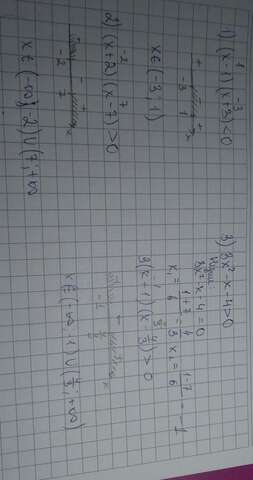 1) (x-1)(x+3)<0
1 -3
+ - +
-3 1 x
x∈(-3;1)
2) (x+2)(x-7)>0
-2 7
+ - +
-2 7 x
x∈(-∞;-2)∪(7;+∞)
3) 3x²-x-4>0
3x²-x-4=0
x₁ = 1+7/6 = 4/3 x₂ = 1-7/6 = -1
3(x+1)(x-4/3)>0
-1 4/3
x∈(-∞;-1)∪(4/3;+∞)